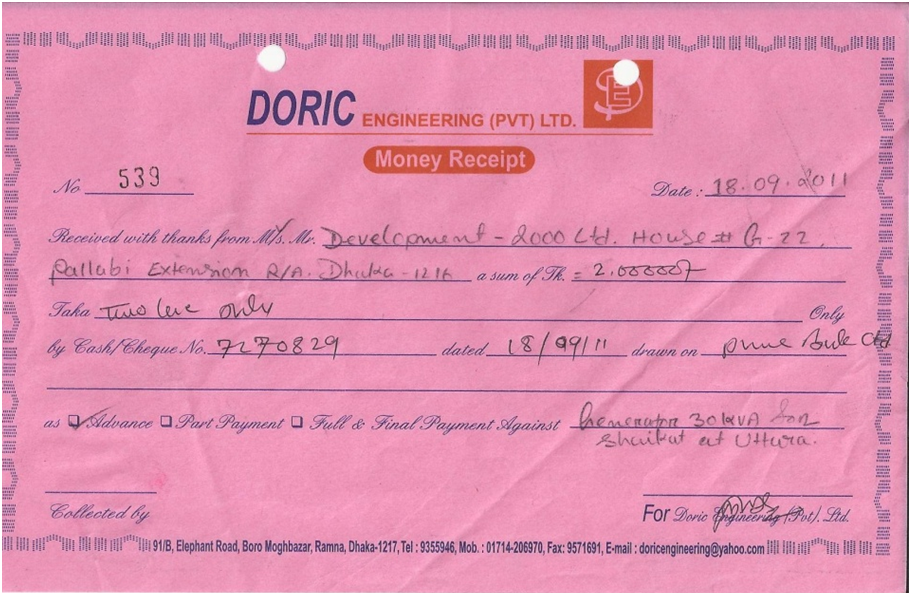 DORIC ENGINEERING (PVT) LTD.
Money Receipt
No 539 Date : 18.09.2011
Received with thanks from M/s. Mr. Development - 2000 Ltd. House # G-22,
Pallabi Extension R/A. Dhaka - 1216 a sum of Tk. = 2,00000/-
Taka Two lac only Only
by Cash/Cheque No. 7270829 dated 18/09/11 drawn on Prime Bank Ltd
as Advance Part Payment Full & Final Payment Against Generator 30 KVA for
at Uttara.
Collected by For Doric Engineering (Pvt). Ltd.
91/B, Elephant Road, Boro Moghbazar, Ramna, Dhaka-1217, Tel : 9355946, Mob. : 01714-206970, Fax: 9571691, E-mail : doricengineering@yahoo.com